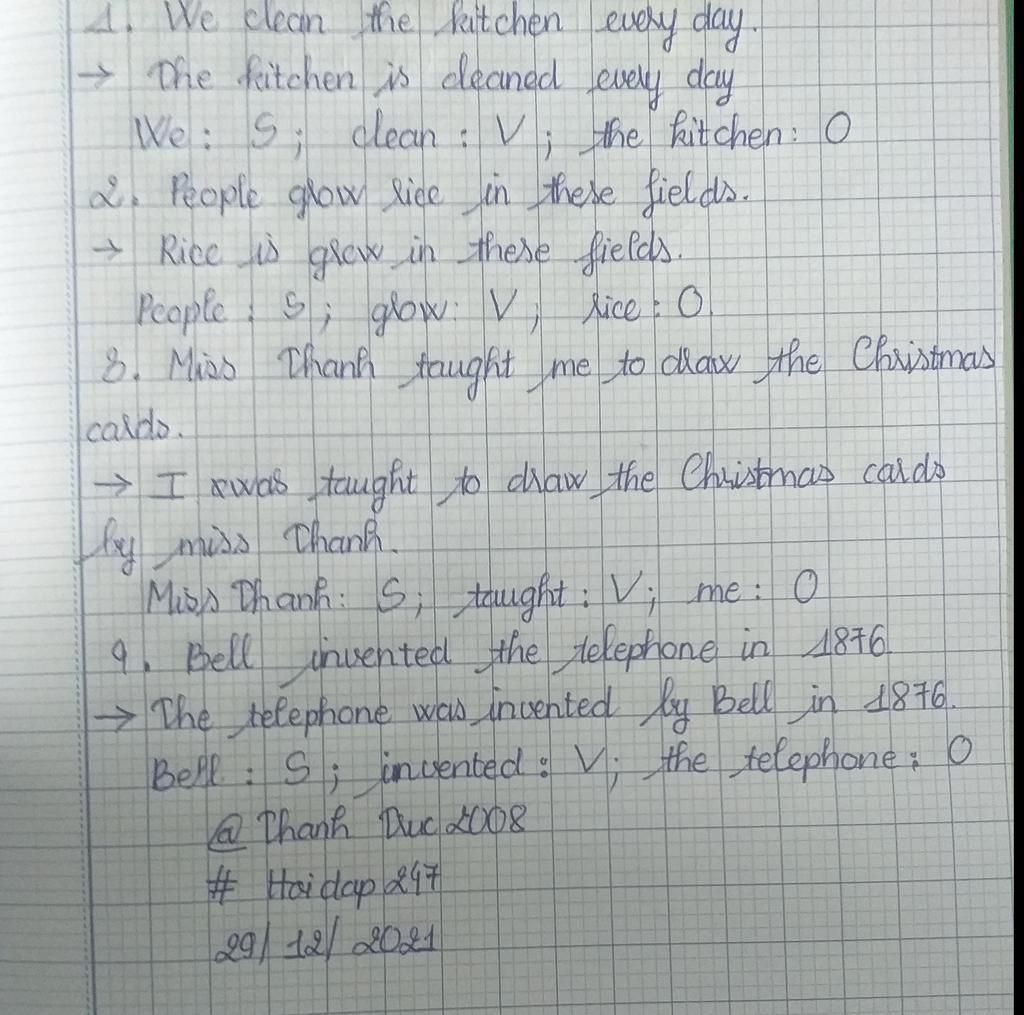 1. We clean the kitchen every day.
→ The kitchen is cleaned every day
We: S; clean: V; the kitchen: O
2. People grow rice in these fields.
→ Rice is grow in these fields.
People: S; grow: V; rice: O
3. Miss Thanh taught me to draw the Christmas
cards.
→ I was taught to draw the Christmas cards
by miss Thanh.
Miss Thanh: S; taught: V; me: O
4. Bell invented the telephone in 1876
→ The telephone was invented by Bell in 1876.
Bell: S; invented: V; the telephone: O
@ Thanh Duc 2008
# Hoidap 247
29/12/2021